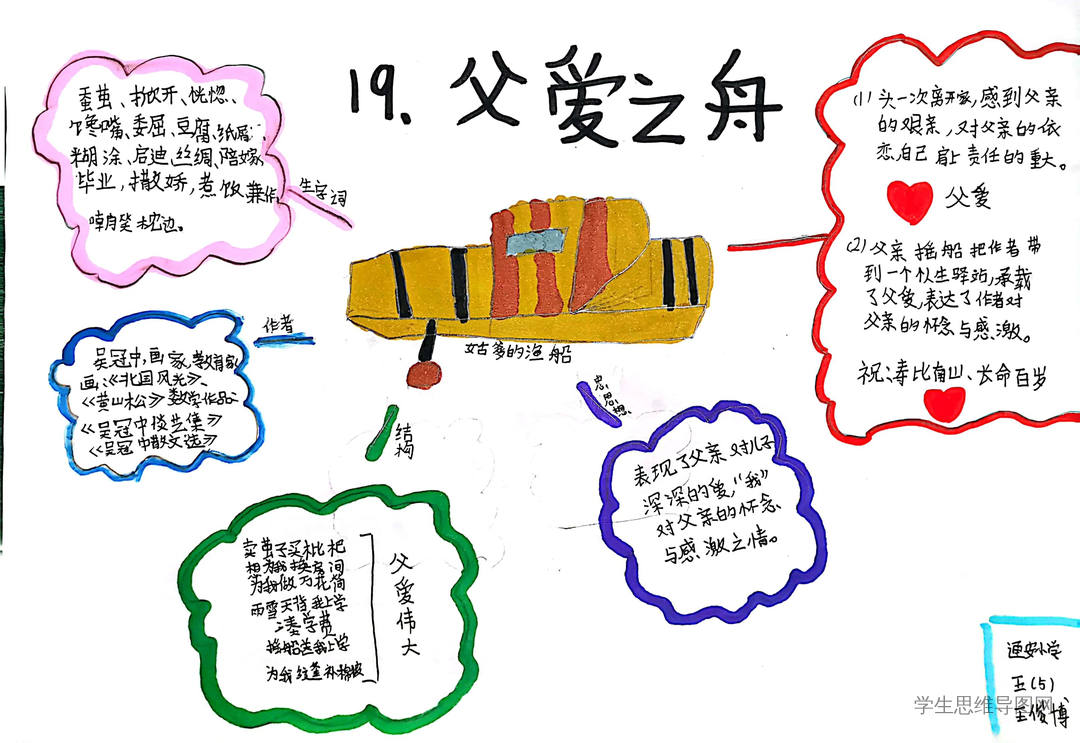 19.父爱之舟
蚕茧、掀开、恍惚、
馋嘴、委屈、豆腐、纸屑、
糊涂、启迪、丝绸、陪嫁、
毕业、撒娇、煮饭、兼作、
枕边。
生字词
作者
吴冠中,画家,教育家
画:《北国风光》、
《黄山松》 数学作品:
《吴冠中谈艺集》
《吴冠中散文选》
姑爹的渔船
结构
卖茧子买枇杷
换房间
为我做万花筒
雨雪天背我上学
凑学费
摇船送我上学
为我缝补棉被
父爱伟大
思想
表现了父亲对儿子
深深的爱,“我”
对父亲的怀念
与感激之情。
(1)头一次离开家,感到父亲
的艰亲,对父亲的依
恋,自己肩上责任的重大。
父爱
(2)父亲摇船把作者带
到一个个人生驿站,承载
了父爱,表达了作者对
父亲的怀念与感激。
祝:寿比南山、长命百岁
通安小学
五(5)
王俊博
学生思维导图网